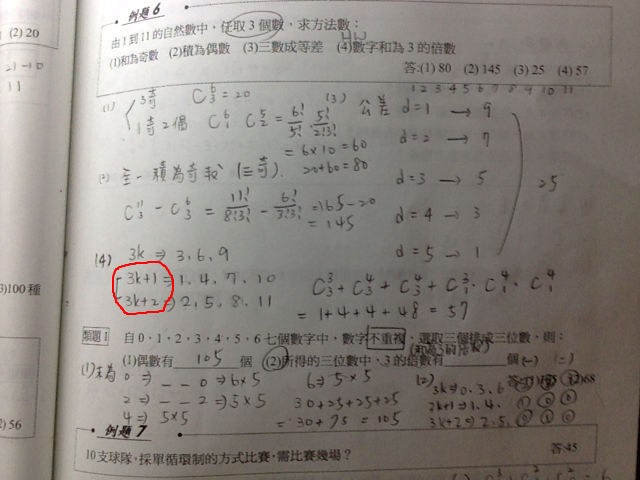 (1) 2) 20
21-10
11
例題 6
由 1 到 11 的自然數中，任取 3 個數，求方法數：
(1)和為奇數 (2)積為偶數 (3)三數成等差 (4)數字和為 3 的倍數
答:(1) 80 (2) 145 (3) 25 (4) 57
1 2 3 4 5 6 7 8 9 10 11
(1) 3奇 C⁶₃ = 20
1奇2偶 C⁶₁ C⁵₂ = 6!/5! 5!/2!3!
= 6×10 = 60
20+60 = 80
(2) 全－積為奇數 (三奇)
C¹¹₃ - C⁶₃ = 11!/8!3! - 6!/3!3! = 165-20
= 145
(3) 公差 d=1 → 9
d=2 → 7
d=3 → 5
25
d=4 → 3
d=5 → 1
(4) 3k ⇒ 3,6,9
3k+1 ⇒ 1,4,7,10
3k+2 ⇒ 2,5,8,11
C³₃+C⁴₃+C⁴₃+C³₁·C⁴₁·C⁴₁
= 1+4+4+48 = 57
3)100 種
類題 1 自 0，1，2，3，4，5，6 七個數字中，數字不重複，選取三個排成三位數，則：
(1)偶數有 105 個 (2)所得的三位數中，3 的倍數有 個
(1)末為 0 ⇒ _ _ 0 ⇒ 6×5
2 ⇒ _ _ 2 ⇒ 5×5
4 ⇒ 5×5
6 ⇒ 5×5
30+25+25+25
= 30+75 = 105
(2) 3k ⇒ 0,3,6
3k+1 ⇒ 1,4
3k+2 ⇒ 2,5
2) 56
例題 7
10 支球隊，採單循環制的方式比賽，需比賽幾場？
答:45